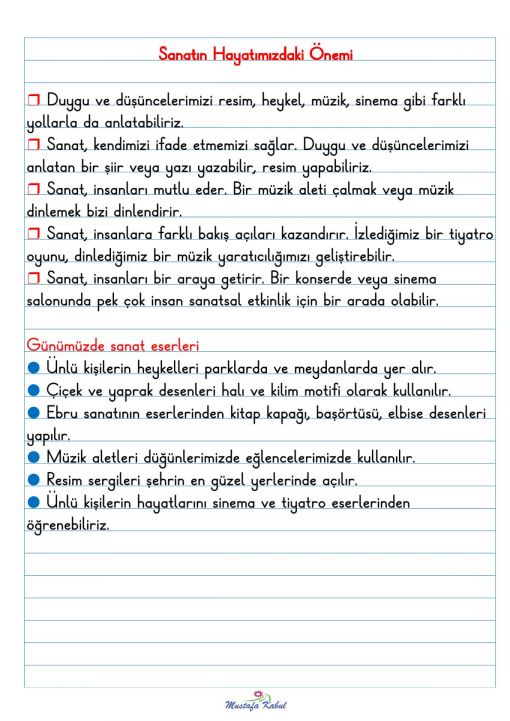 Sanatın Hayatımızdaki Önemi
❒ Duygu ve düşüncelerimizi resim, heykel, müzik, sinema gibi farklı
yollarla da anlatabiliriz.
❒ Sanat, kendimizi ifade etmemizi sağlar. Duygu ve düşüncelerimizi
anlatan bir şiir veya yazı yazabilir, resim yapabiliriz.
❒ Sanat, insanları mutlu eder. Bir müzik aleti çalmak veya müzik
dinlemek bizi dinlendirir.
❒ Sanat, insanlara farklı bakış açıları kazandırır. İzlediğimiz bir tiyatro
oyunu, dinlediğimiz bir müzik yaratıcılığımızı geliştirebilir.
❒ Sanat, insanları bir araya getirir. Bir konserde veya sinema
salonunda pek çok insan sanatsal etkinlik için bir arada olabilir.
Günümüzde sanat eserleri
● Ünlü kişilerin heykelleri parklarda ve meydanlarda yer alır.
● Çiçek ve yaprak desenleri halı ve kilim motifi olarak kullanılır.
● Ebru sanatının eserlerinden kitap kapağı, başörtüsü, elbise desenleri
yapılır.
● Müzik aletleri düğünlerimizde eğlencelerimizde kullanılır.
● Resim sergileri şehrin en güzel yerlerinde açılır.
● Ünlü kişilerin hayatlarını sinema ve tiyatro eserlerinden
öğrenebiliriz.
Mustafa Kabul